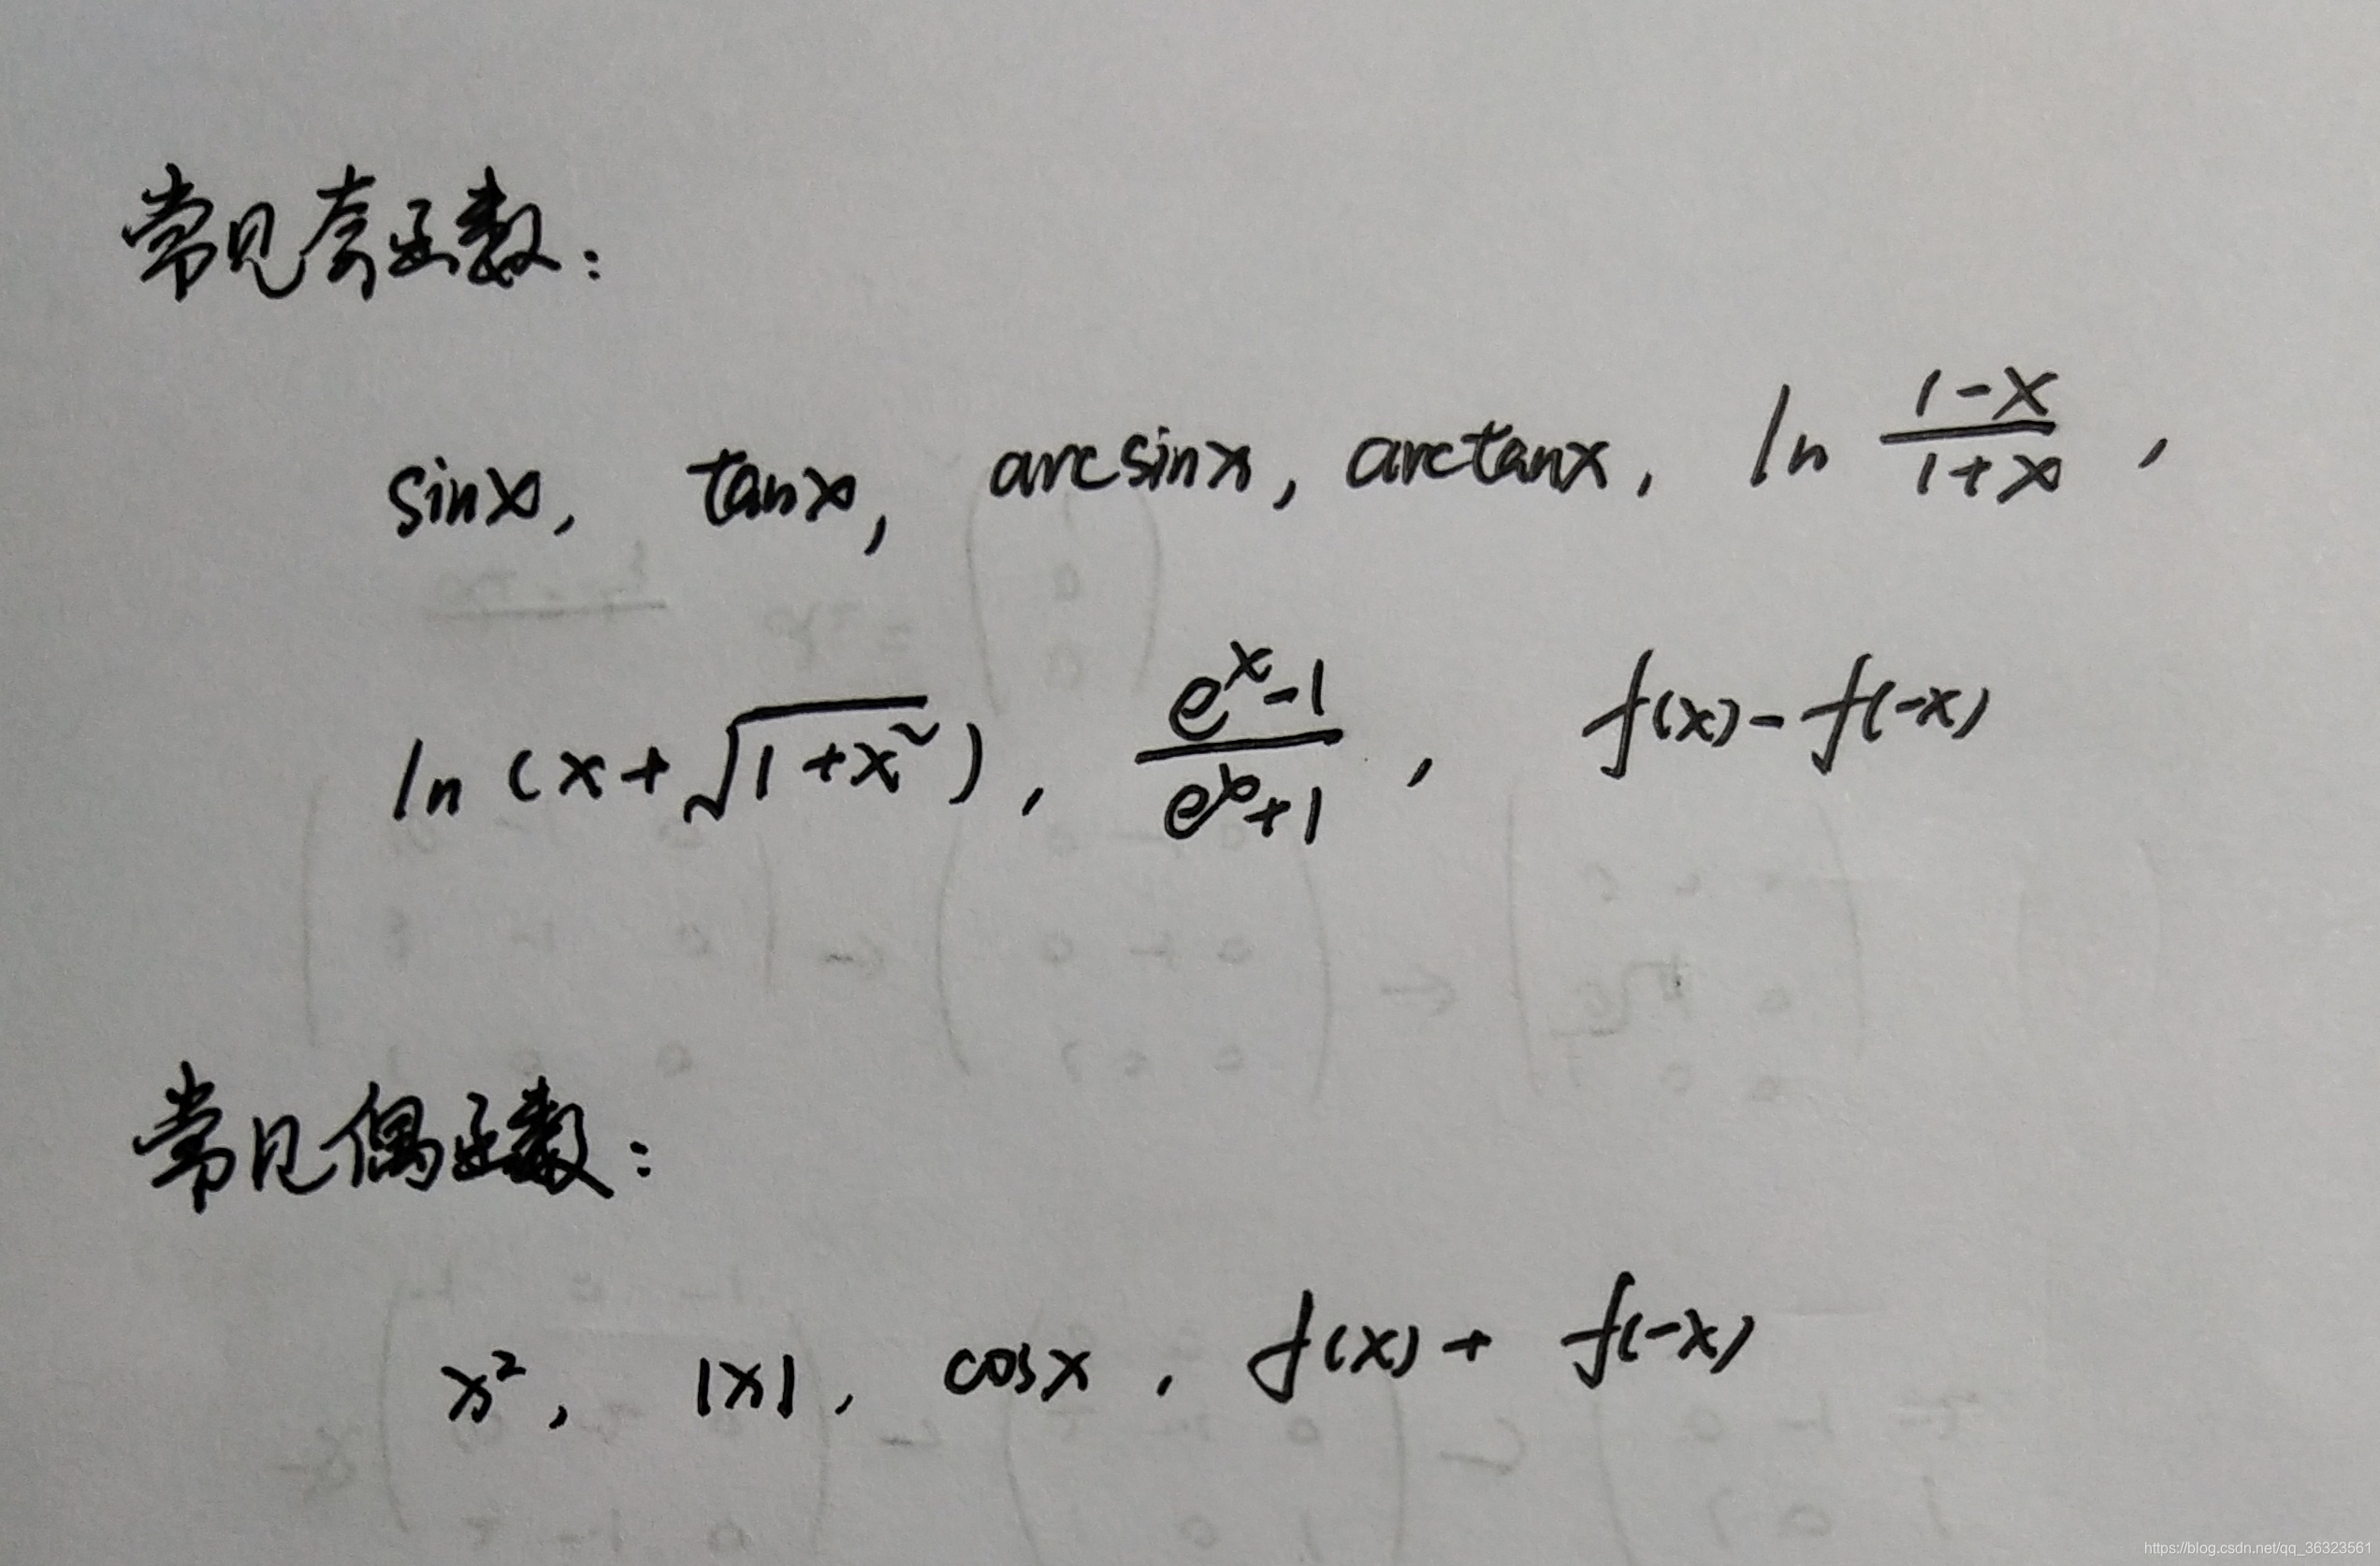 常见奇函数：
sinx, tanx, arcsinx, arctanx, ln (1-x)/(1+x),
ln (x+√(1+x²)), (eˣ-1)/(eˣ+1), f(x)-f(-x)
常见偶函数：
x², |x|, cosx, f(x)+ f(-x)
https://blog.csdn.net/qq_36323561